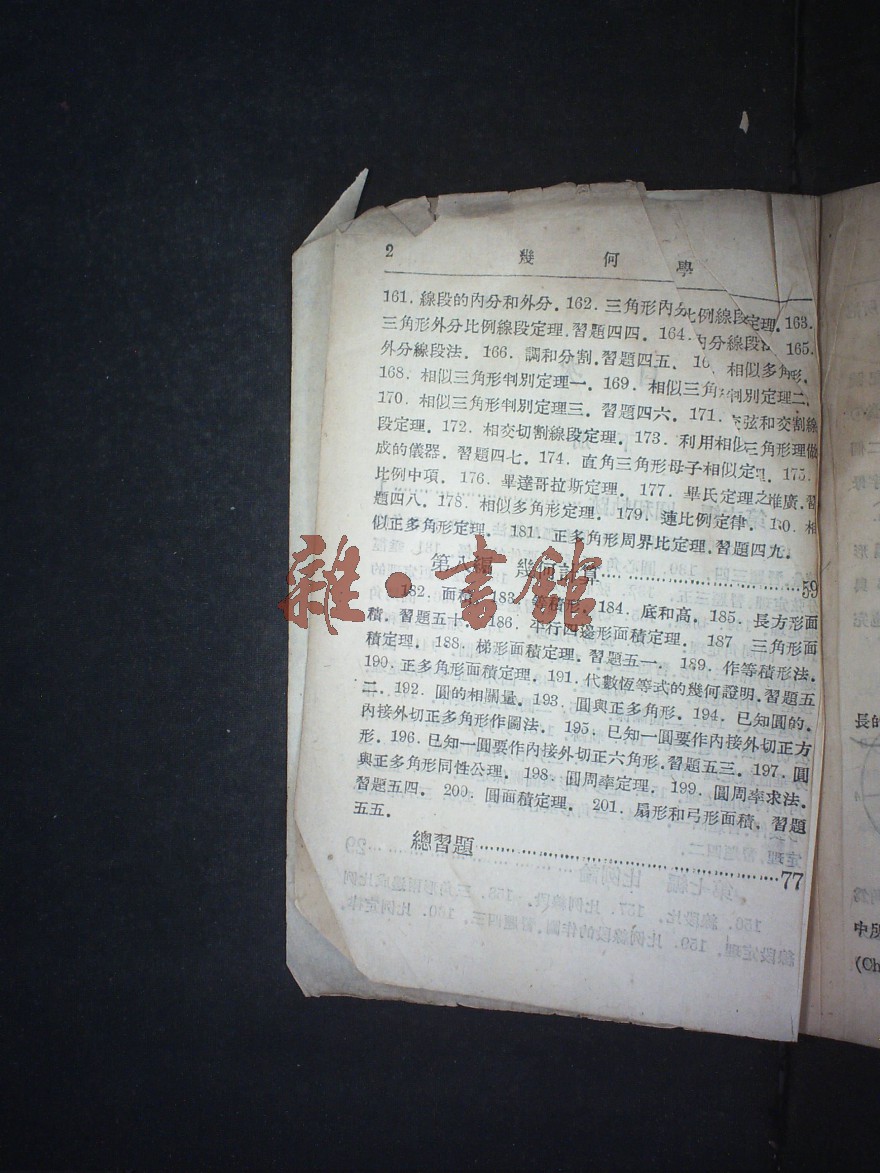 2 幾何學
161. 線段的內分和外分. 162. 三角形內分比例線段定理. 163.
三角形外分比例線段定理. 習題四四. 164. 內分線段法 165.
外分線段法. 166. 調和分割. 習題四五. 16 相似多角形.
168. 相似三角形判別定理一. 169. 相似三角形判別定理二.
170. 相似三角形判別定理三. 習題四六. 171. 交弦和交割線
段定理. 172. 相交切割線段定理. 173. 利用相似三角形理做
成的儀器. 習題四七. 174. 直角三角形母子相似定理. 175.
比例中項. 176. 畢達哥拉斯定理. 177. 畢氏定理之推廣. 習
題四八. 178. 相似多角形定理. 179. 連比例定律. 180. 相
似正多角形定理. 181. 正多角形周界比定理. 習題四九.
第八編 幾何計算……………………59
182. 面積. 183. 等積形. 184. 底和高. 185. 長方形面
積. 習題五十. 186. 平行四邊形面積定理. 187. 三角形面
積定理. 188. 梯形面積定理. 習題五一. 189. 作等積形法.
190. 正多角形面積定理. 191. 代數恆等式的幾何證明. 習題五
二. 192. 圓的相關量. 193. 圓與正多角形. 194. 已知圓的.
內接外切正多角形作圖法. 195. 已知一圓要作內接外切正方
形. 196. 已知一圓要作內接外切正六角形. 習題五三. 197. 圓
與正多角形同性公理. 198. 圓周率定理. 199. 圓周率求法.
習題五四. 200. 圓面積定理. 201. 扇形和弓形面積. 習題
五五.
總習題……………………77
雜·書館
長的
中所
(Ch